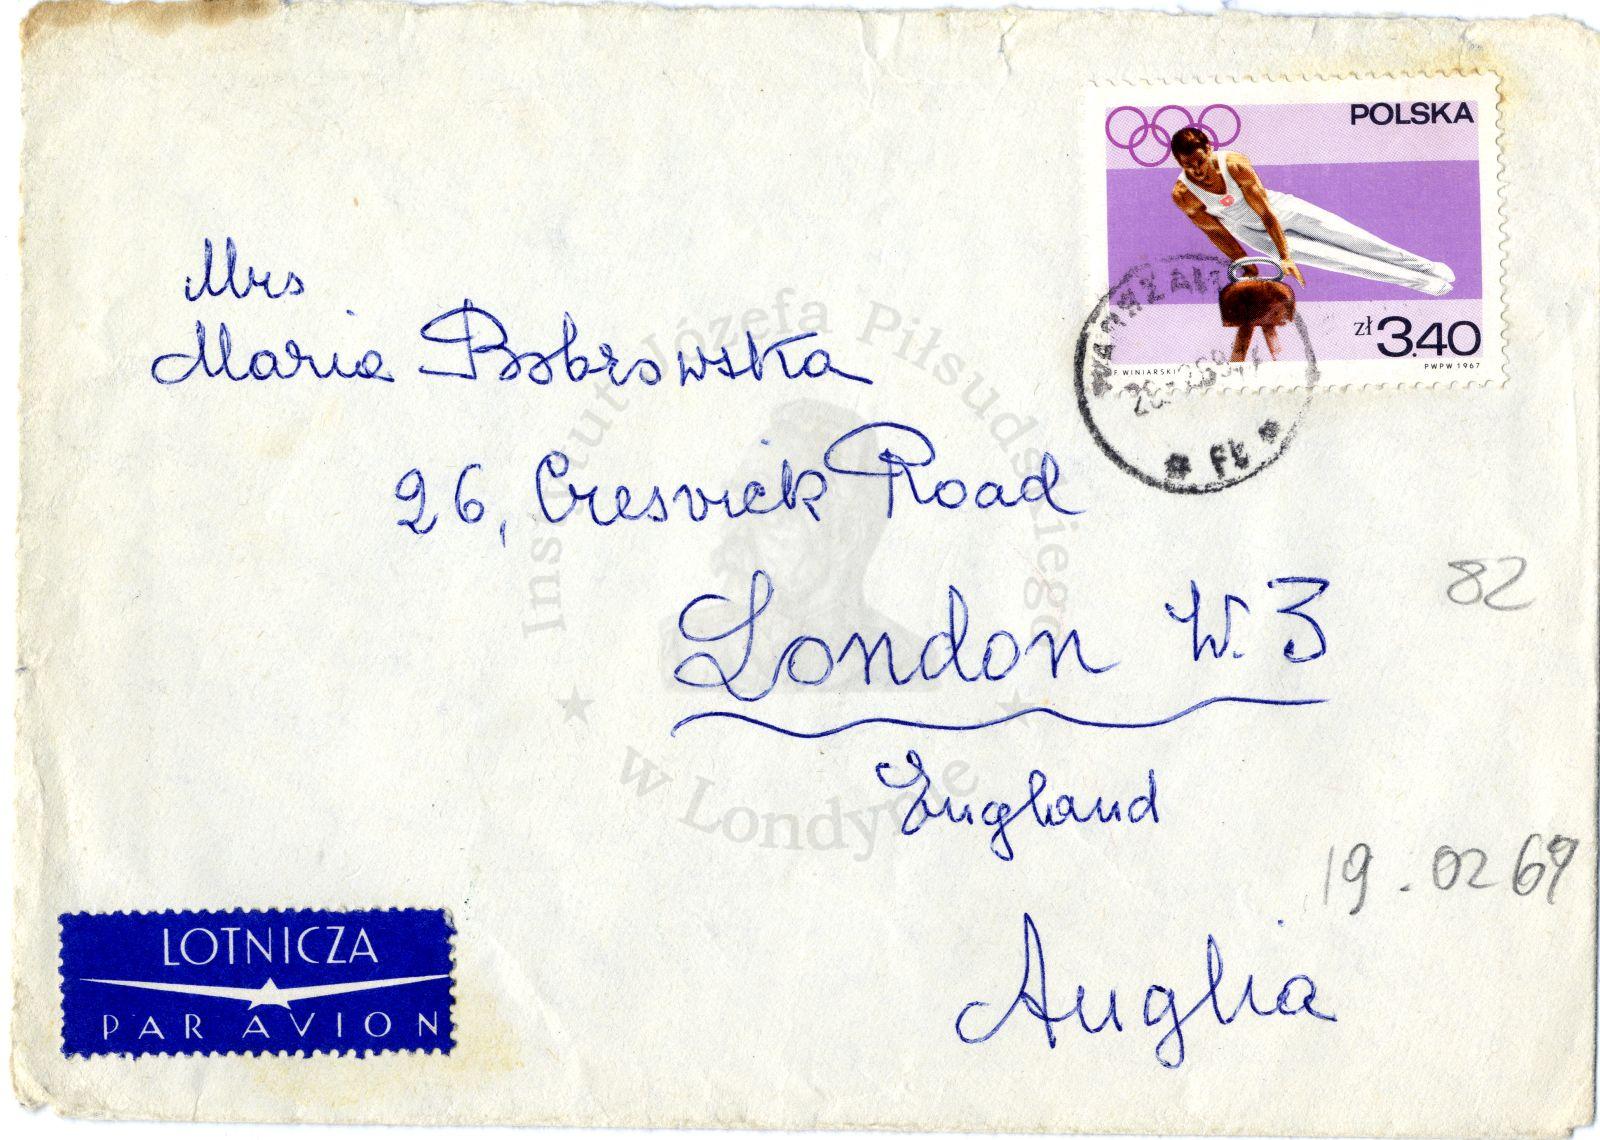 POLSKA
zł 3.40
F. WINIARSKI
PWPW 1967
WARSZAWA
* FŁ *
Mrs
Maria Bobrowska
26, Cresvick Road
London W. 3
England
Anglia
82
19.02 69
LOTNICZA
PAR AVION
Instytut Józefa Piłsudskiego
w Londynie